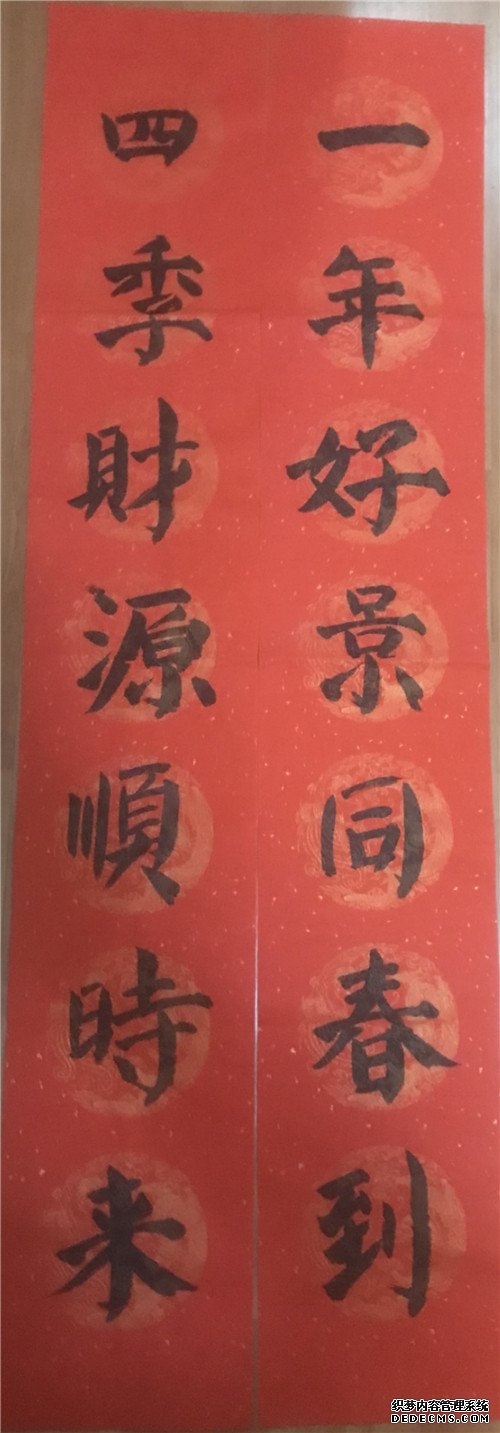 一年好景同春到
四季財源順時来
织梦内容管理系统
DEDECMS.COM